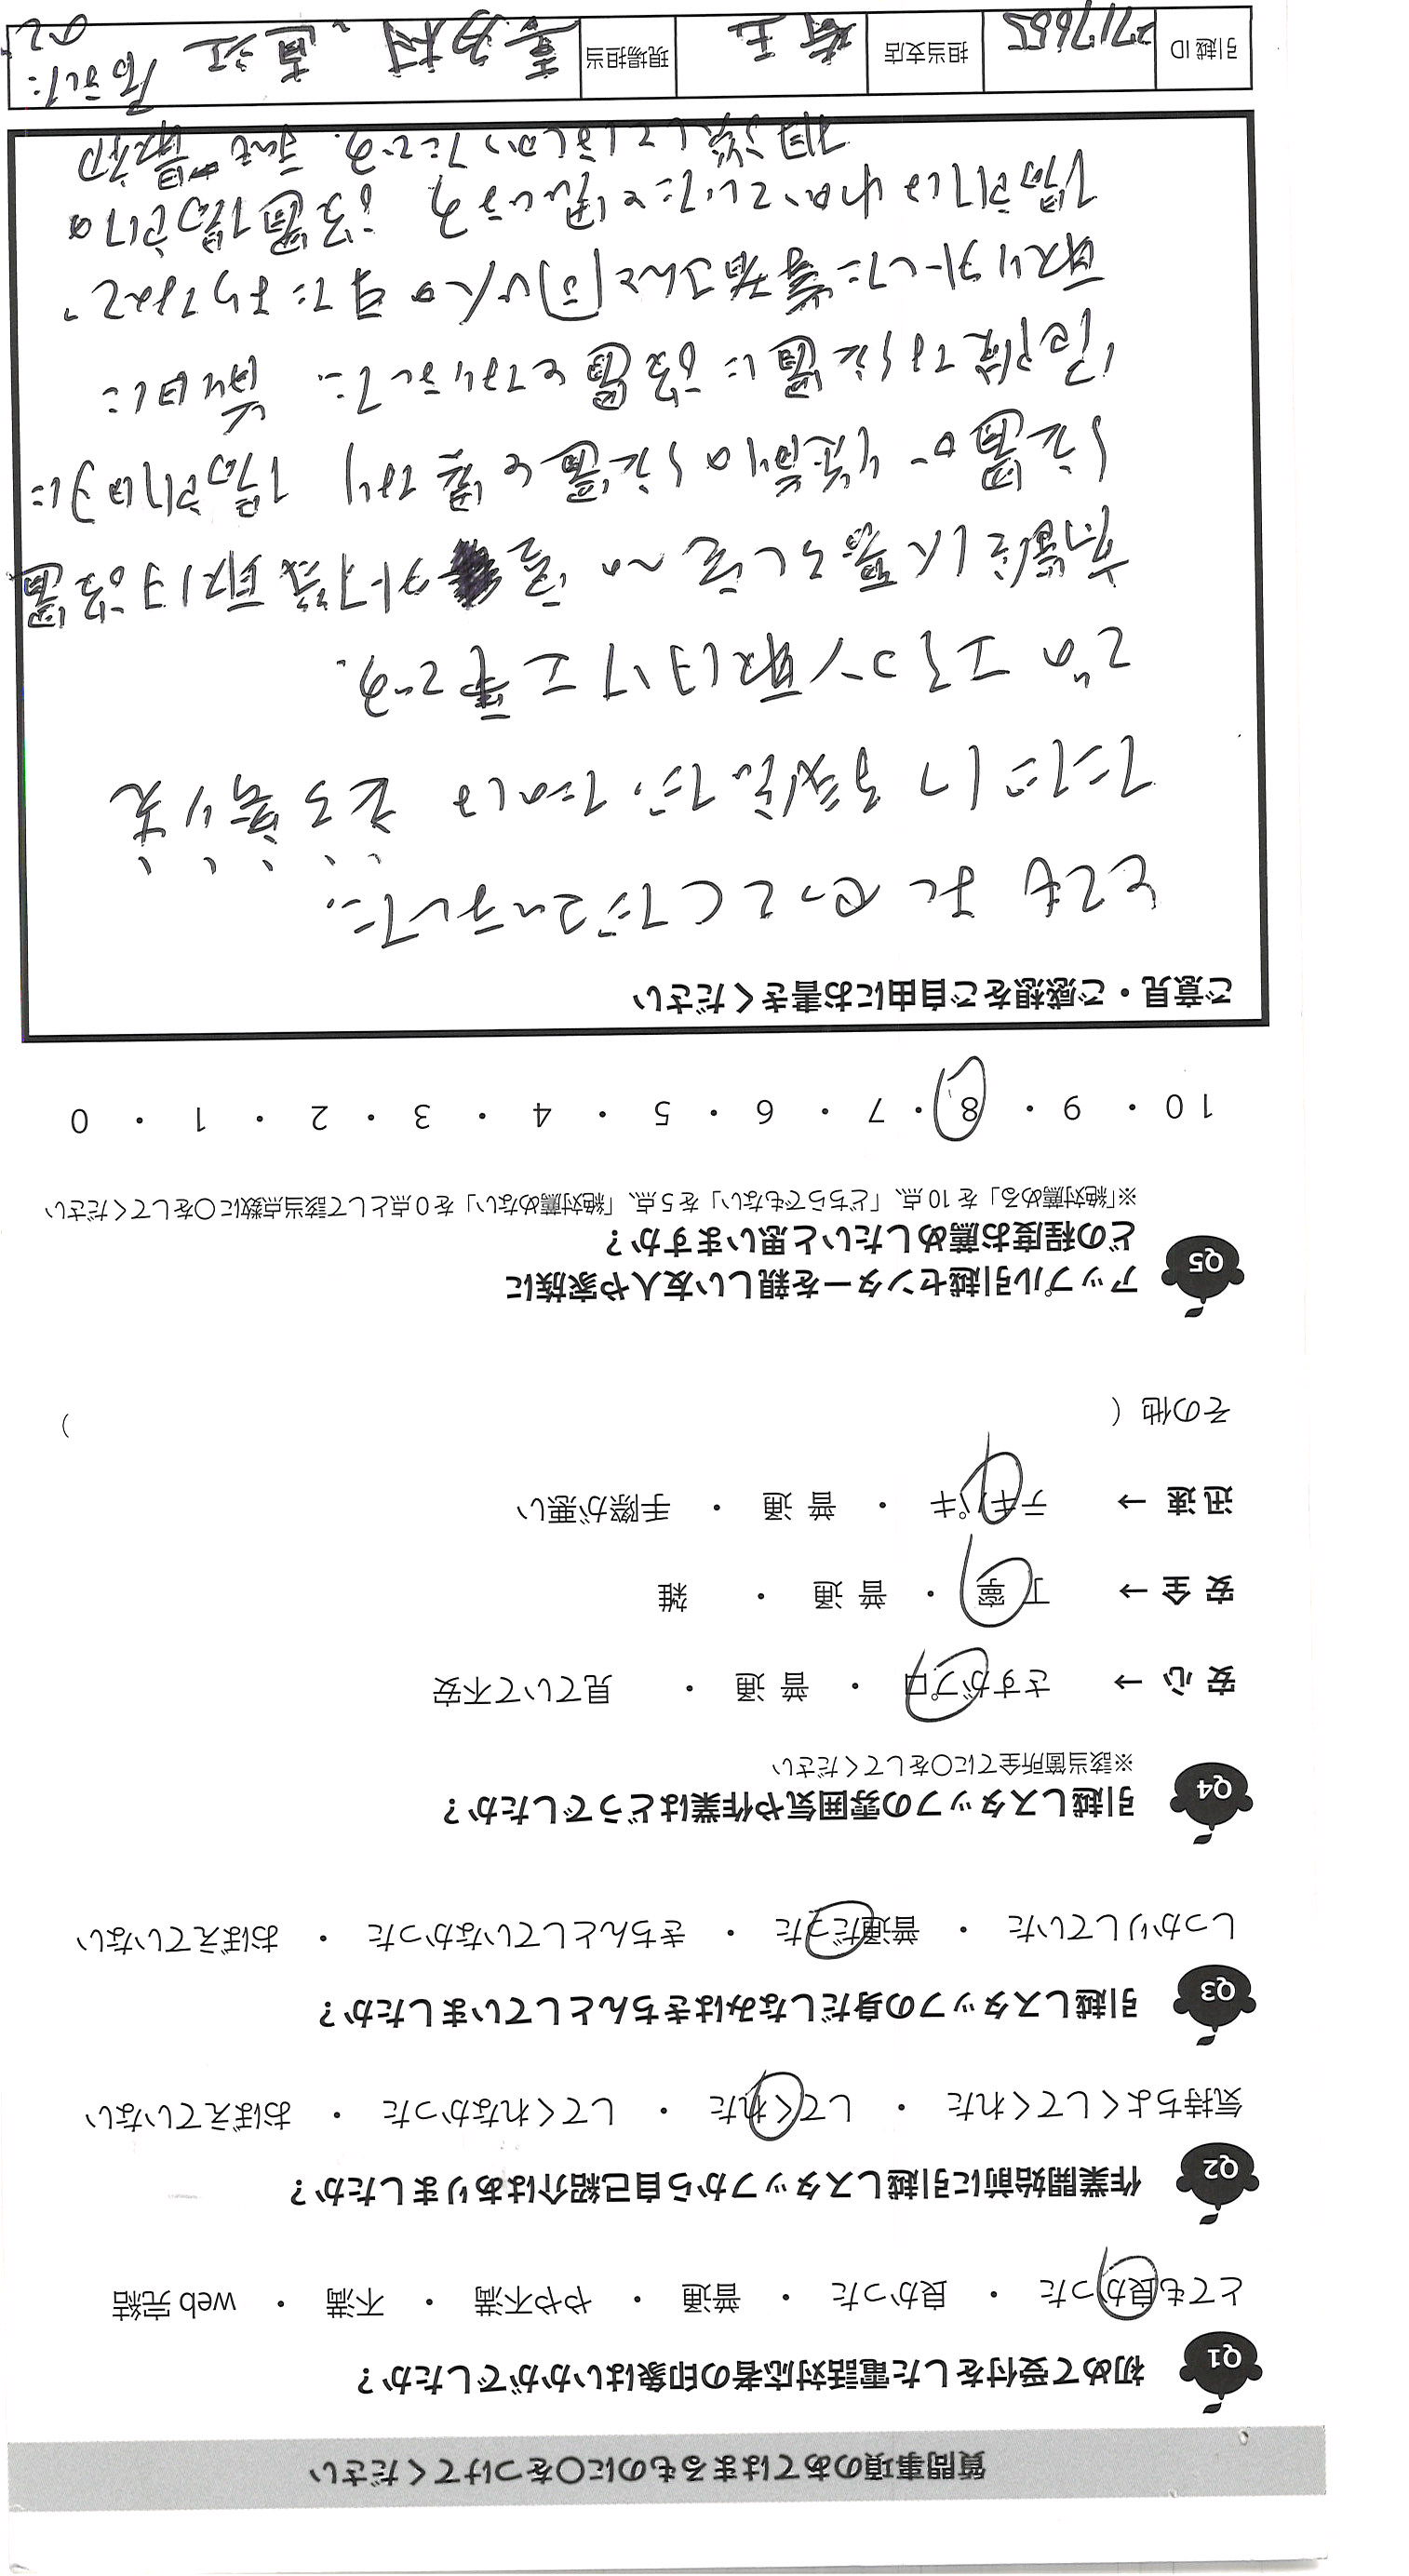 質問事項のあてはまるものに〇をつけてください
Q1 初めて受付をした電話対応者の印象はいかがでしたか？
とても良かった ・ 良かった ・ 普通 ・ やや不満 ・ 不満 ・ web完結
Q2 作業開始前に引越しスタッフから自己紹介はありましたか？
気持ちよくしてくれた ・ してくれた ・ してくれなかった ・ おぼえていない
Q3 引越しスタッフの身だしなみはきちんとしていましたか？
しっかりしていた ・ 普通だった ・ きちんとしていなかった ・ おぼえていない
Q4 引越しスタッフの雰囲気や作業はどうでしたか？
※該当箇所全てに〇をしてください
安心 → さすがプロ ・ 普通 ・ 見ていて不安
安全 → 丁寧 ・ 普通 ・ 雑
迅速 → テキパキ ・ 普通 ・ 手際が悪い
その他（ ）
Q5 アップル引越センターを親しい友人や家族に
どの程度お薦めしたいと思いますか？
※「絶対薦める」を10点、「どちらでもない」を5点、「絶対薦めない」を0点として該当点数に〇をしてください
10 ・ 9 ・ 8 ・ 7 ・ 6 ・ 5 ・ 4 ・ 3 ・ 2 ・ 1 ・ 0
ご意見・ご感想をご自由にお書きください
とても よくやってくださいました。
ただ1つ 残念だったのは 立ち寄り先
でのエアコン取付け工事です。
高齢 1人暮らし宅への 室外機取付設置
位置が 作業性の位置を選び 隣の方に
迷惑な位置に設置されました。
取り外した業者さんと同じ人の
隣は わかっていたと思います 設置場所の
相談してほしかったです。 最初
引越ID 2717685 担当支店 埼玉 現場担当 喜多村、直江